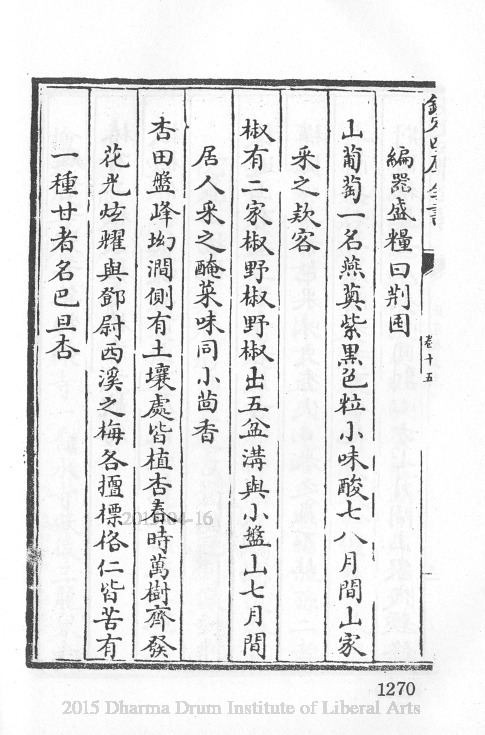 欽定四庫全書
卷十五
編器盛糧曰荆囤
山葡萄一名燕薁紫黑色粒小味酸七八月間山家
采之欵客
椒有二家椒野椒野椒出五盆溝與小盤山七月間
居人采之醃菜味同小茴香
杏田盤峰坳澗側有土壤處皆植杏春時萬樹齊發
花光炫耀與鄧尉西溪之梅各擅標格仁皆苦有
一種甘者名巴旦杏
2015-04-16
1270
2015 Dharma Drum Institute of Liberal Arts